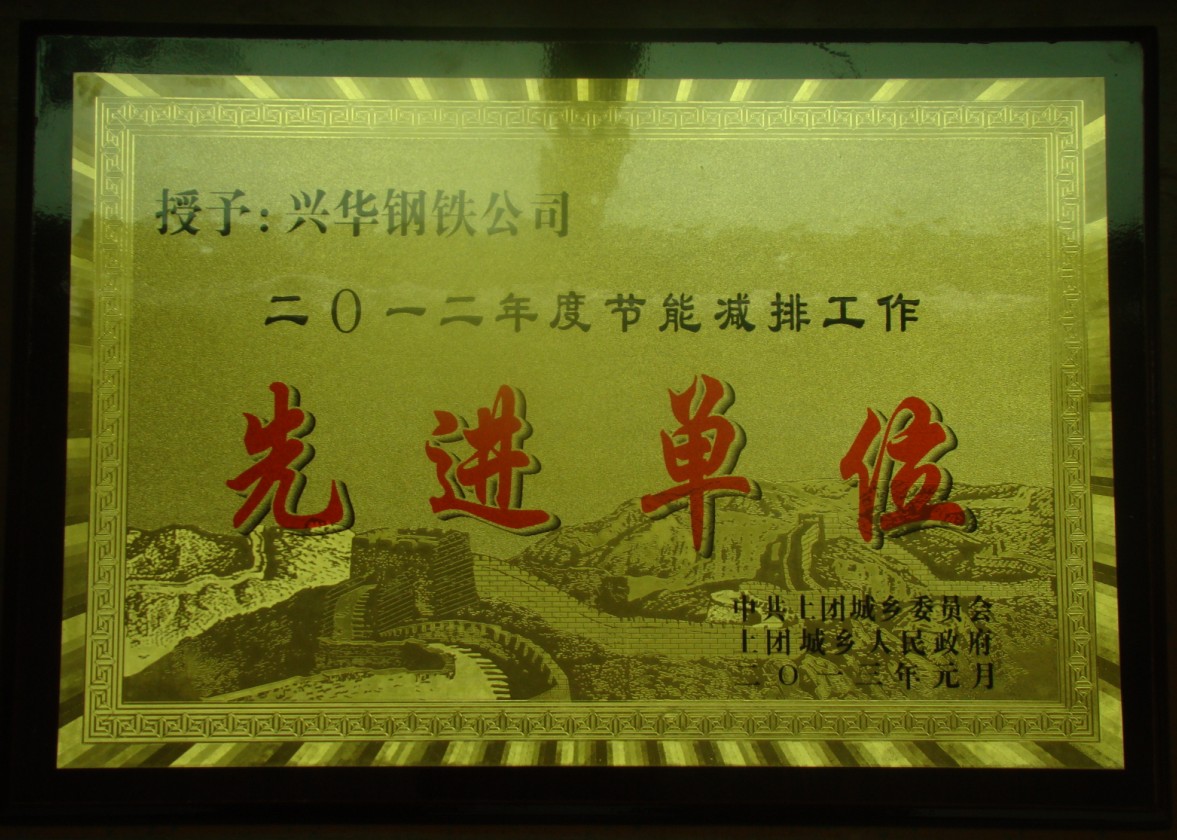 授予:兴华钢铁公司
二〇一二年度节能减排工作
先进单位
中共土团城乡委员会
土团城乡人民政府
二〇一三年元月